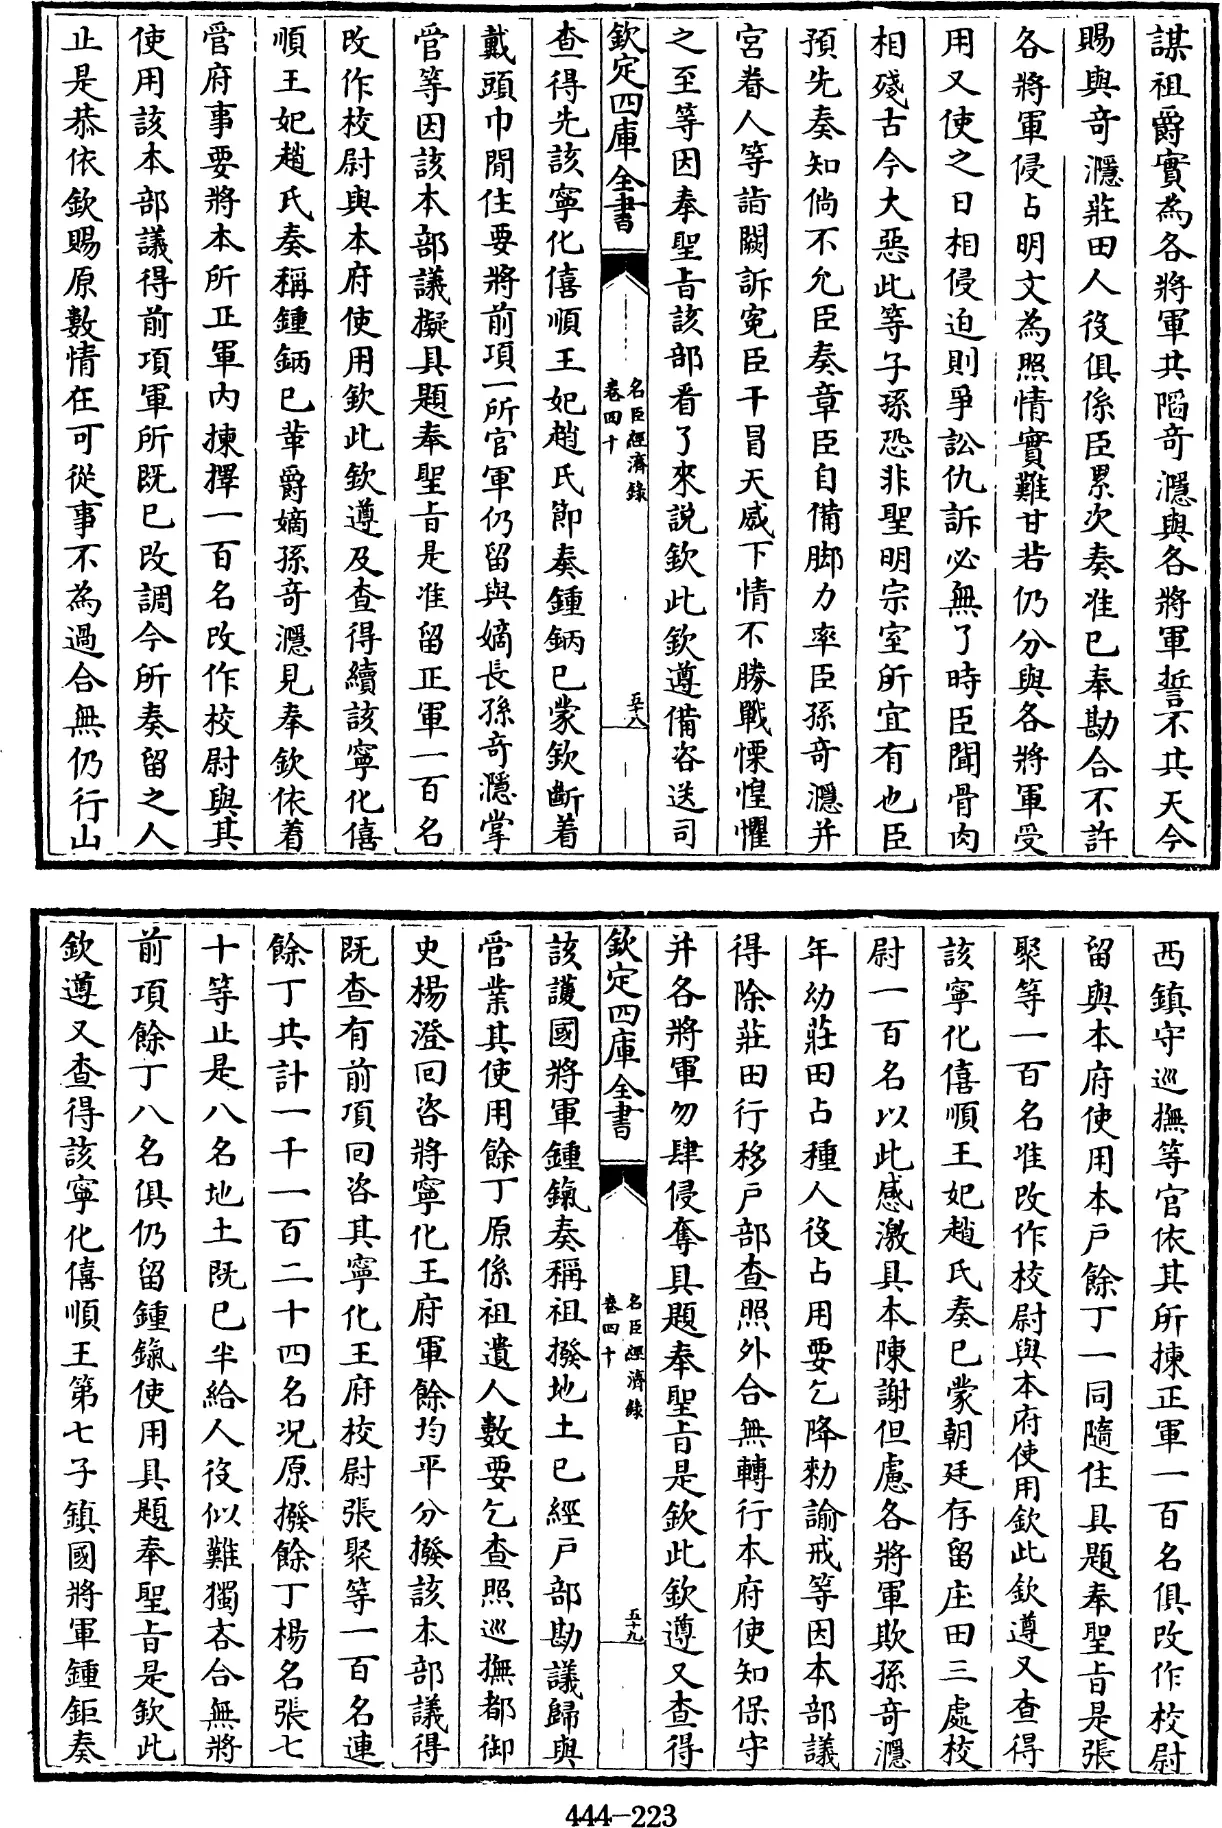 謀祖爵實為各將軍共陷奇濦與各將軍誓不共天今
賜與奇濦莊田人役俱係臣累次奏准已奉勘合不許
各將軍侵占明文為照情實難甘若仍分與各將軍受
用又使之日相侵迫則爭訟仇訴必無了時臣聞骨肉
相殘古今大惡此等子孫恐非聖明宗室所宜有也臣
預先奏知倘不允臣奏章臣自備脚力率臣孫奇濦并
宮眷人等詣闕訴寃臣干冒天威下情不勝戰慄惶懼
之至等因奉聖旨該部看了來說欽此欽遵備咨送司
欽定四庫全書
名臣經濟錄
卷四十
五十八
查得先該寧化僖順王妃趙氏節奏鍾鈵已蒙欽斷着
戴頭巾閒住要將前項一所官軍仍留與嫡長孫奇濦掌
管等因該本部議擬具題奉聖旨是准留正軍一百名
改作校尉與本府使用欽此欽遵及查得續該寧化僖
順王妃趙氏奏稱鍾鈵已革爵嫡孫奇濦見奉欽依着
管府事要將本所正軍內揀擇一百名改作校尉與其
使用該本部議得前項軍所既已改調今所奏留之人
止是恭依欽賜原數情在可從事不為過合無仍行山
西鎮守巡撫等官依其所揀正軍一百名俱改作校尉
留與本府使用本戶餘丁一同隨住具題奉聖旨是張
聚等一百名准改作校尉與本府使用欽此欽遵又查得
該寧化僖順王妃趙氏奏已蒙朝廷存留庄田三處校
尉一百名以此感激具本陳謝但慮各將軍欺孫奇濦
年幼莊田占種人役占用要乞降勑諭戒等因本部議
得除莊田行移戶部查照外合無轉行本府使知保守
并各將軍勿肆侵奪具題奉聖旨是欽此欽遵又查得
欽定四庫全書
名臣經濟錄
卷四十
五十九
該護國將軍鍾鎎奏稱祖撥地土已經戶部勘議歸與
管業其使用餘丁原係祖遺人數要乞查照巡撫都御
史楊澄回咨將寧化王府軍餘均平分撥該本部議得
既查有前項回咨其寧化王府校尉張聚等一百名連
餘丁共計一千一百二十四名况原撥餘丁楊名張七
十等止是八名地土既已半給人役似難獨吝合無將
前項餘丁八名俱仍留鍾鎎使用具題奉聖旨是欽此
欽遵又查得該寧化僖順王第七子鎮國將軍鍾鉅奏
444-223